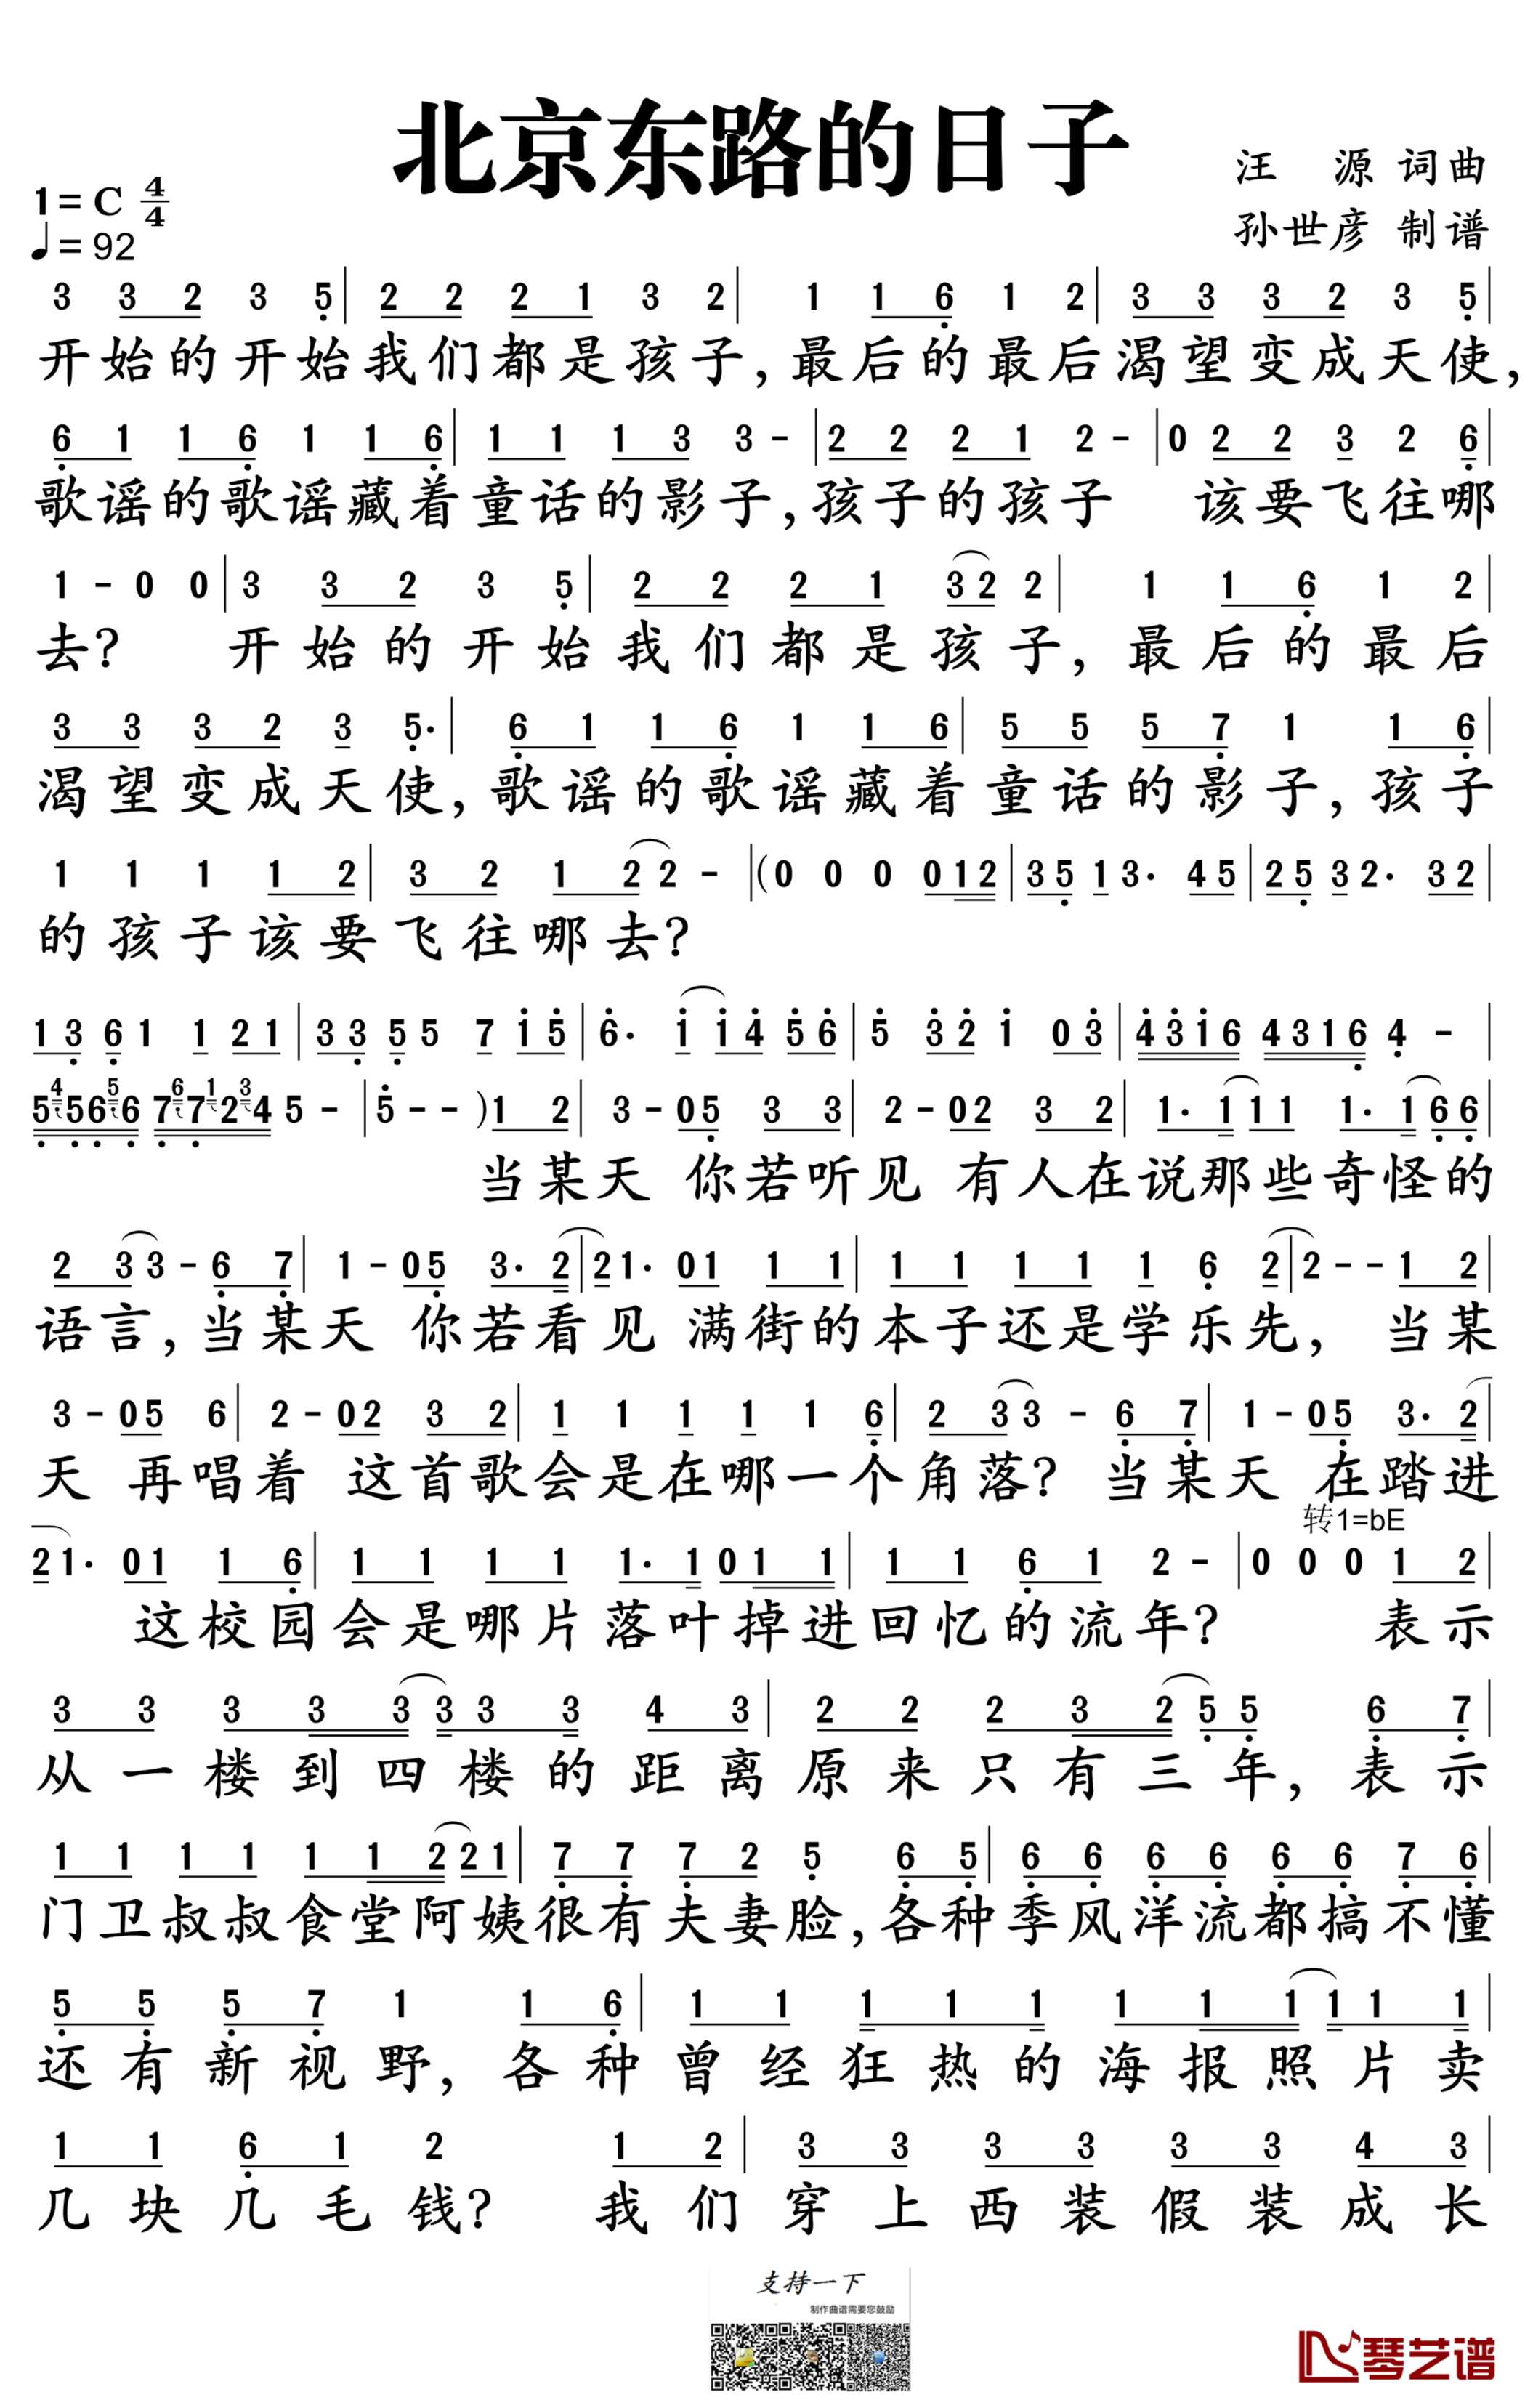 北京东路的日子
汪 源 词曲
孙世彦 制谱
1=C 4/4
♩=92
3 3 2 3 5 | 2 2 2 1 3 2 | 1 1 6 1 2 | 3 3 3 2 3 5 |
开始的开始我们都是孩子,最后的最后渴望变成天使,
6 1 1 6 1 1 6 | 1 1 1 3 3 - | 2 2 2 1 2 - | 0 2 2 3 2 6 |
歌谣的歌谣藏着童话的影子,孩子的孩子 该要飞往哪
1 - 0 0 | 3 3 2 3 5 | 2 2 2 1 3 2 2 | 1 1 6 1 2 |
去? 开始的开始我们都是孩子,最后的最后
3 3 3 2 3 5· | 6 1 1 6 1 1 6 | 5 5 5 7 1 1 6 |
渴望变成天使,歌谣的歌谣藏着童话的影子,孩子
1 1 1 1 2 | 3 2 1 2 2 - | (0 0 0 0 1 2 | 3 5 1 3· 4 5 | 2 5 3 2· 3 2 |
的孩子该要飞往哪去?
1 3 6 1 1 2 1 | 3 3 5 5 7 1 5 | 6· 1 1 4 5 6 | 5 3 2 1 0 3 | 4 3 1 6 4 3 1 6 4 - |
5 4 5 6 5 6 7 6 7 1 2 3 4 5 - | 5 - - ) 1 2 | 3 - 0 5 3 3 | 2 - 0 2 3 2 | 1· 1 1 1 1· 1 6 6 |
当某天 你若听见 有人在说那些奇怪的
2 3 3 - 6 7 | 1 - 0 5 3· 2 | 2 1· 0 1 1 1 | 1 1 1 1 1 6 2 | 2 - - 1 2 |
语言,当某天 你若看见 满街的本子还是学乐先, 当某
3 - 0 5 6 | 2 - 0 2 3 2 | 1 1 1 1 1 6 | 2 3 3 - 6 7 | 1 - 0 5 3· 2 |
天 再唱着 这首歌会是在哪一个角落? 当某天 在踏进
转1=bE
2 1· 0 1 1 6 | 1 1 1 1 1· 1 0 1 1 | 1 1 6 1 2 - | 0 0 0 1 2 |
这校园会是哪片落叶掉进回忆的流年? 表示
3 3 3 3 3 3 3 3 4 3 | 2 2 2 3 2 5 5 6 7 |
从一楼到四楼的距离原来只有三年,表示
1 1 1 1 1 1 2 2 1 | 7 7 7 2 5 6 5 | 6 6 6 6 6 6 7 6 |
门卫叔叔食堂阿姨很有夫妻脸,各种季风洋流都搞不懂
5 5 5 7 1 1 6 | 1 1 1 1 1 1 1 1 1 1 1 |
还有新视野,各种曾经狂热的海报照片卖
1 1 6 1 2 1 2 | 3 3 3 3 3 3 4 3 |
几块几毛钱? 我们穿上西装假装成长
支持一下
制作曲谱需要您鼓励
琴艺谱